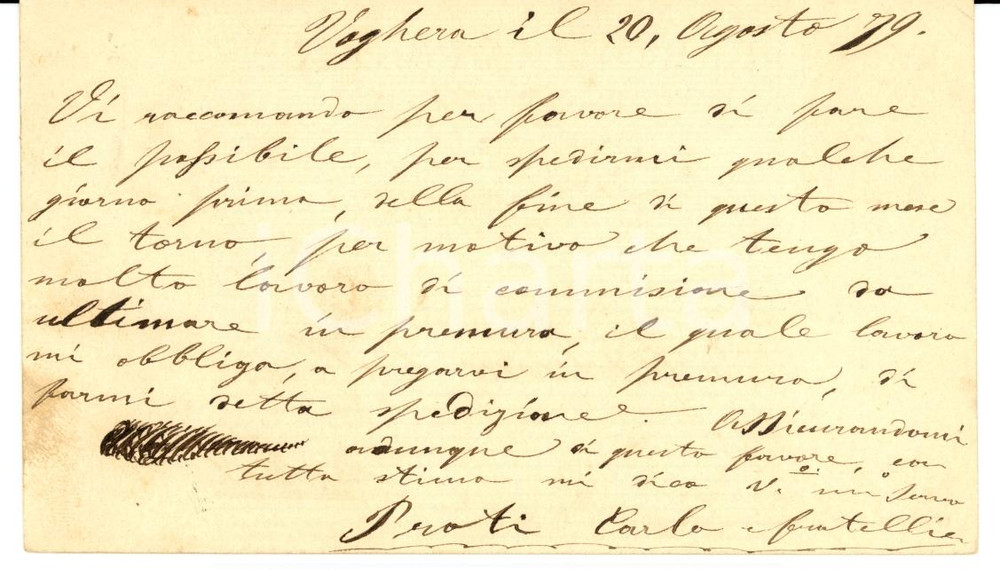 Voghera il 20, Agosto 79.
Vi raccomando per favore di fare
il possibile, per spedirmi qualche
giorno prima, della fine di questo mese
il torno, per motivo che tengo
molto lavoro di commisione da
ultimare in premura, il quale lavoro
mi obbliga, a pregarvi in premura, di
farmi detta spedizione. Assicurandomi
adunque di questo favore, con
tutta stima mi dico V.o um.o Servo
Prati Carlo e fratelli
iCharta